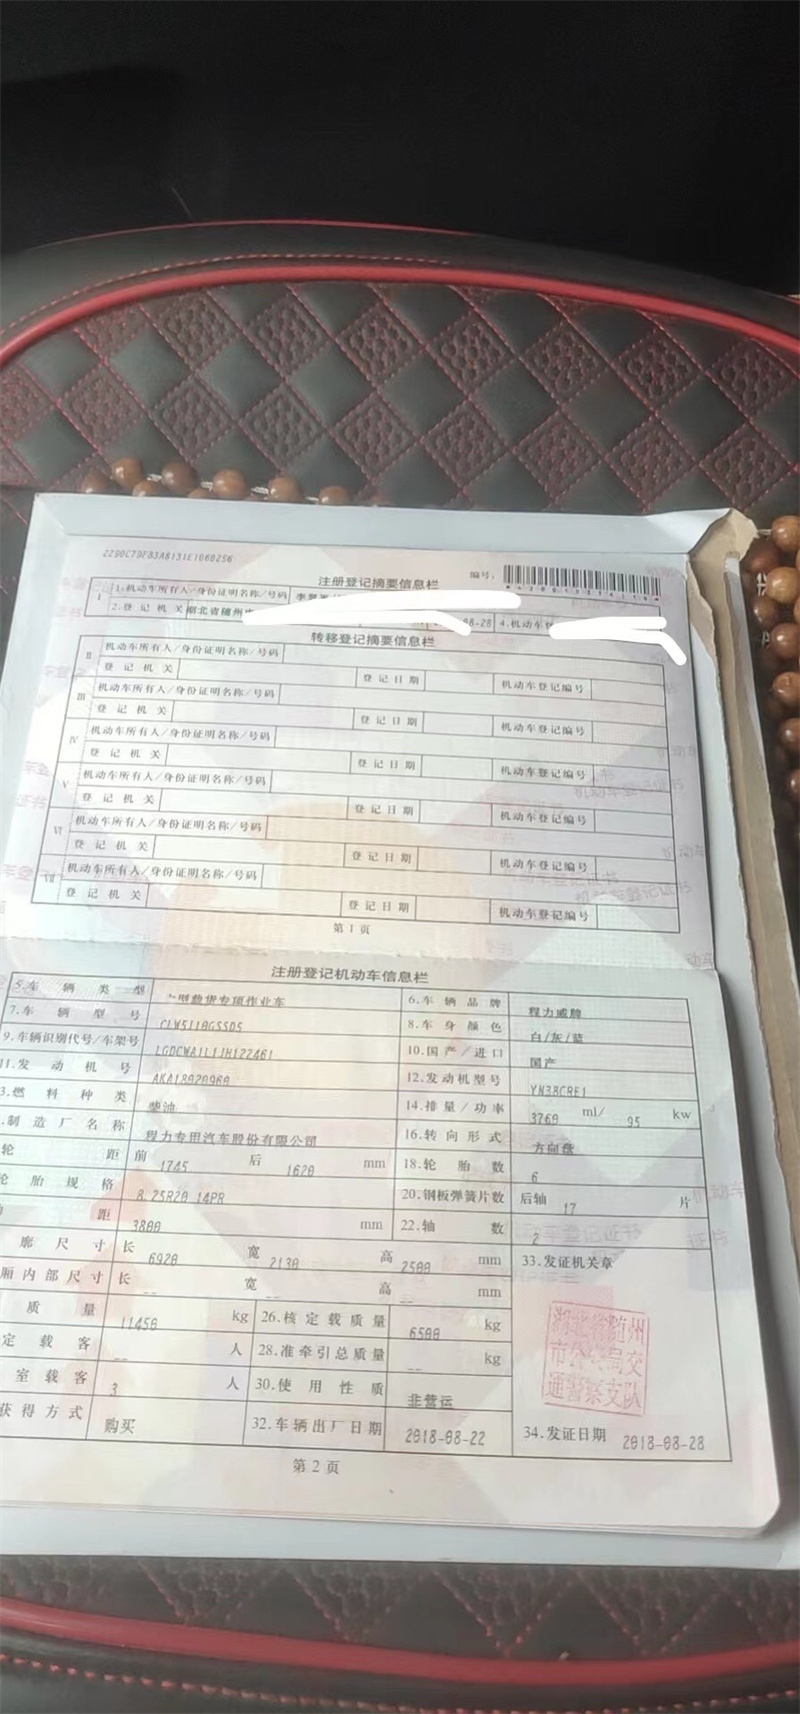 2290C7DF83A8131E1060256
注册登记摘要信息栏 编号:
I 1.机动车所有人/身份证明名称/号码
2.登记机关 湖北省随州市 08-28 4.机动车
转移登记摘要信息栏
II 机动车所有人/身份证明名称/号码
登记机关 登记日期 机动车登记编号
III 机动车所有人/身份证明名称/号码
登记机关 登记日期 机动车登记编号
IV 机动车所有人/身份证明名称/号码
登记机关 登记日期 机动车登记编号
V 机动车所有人/身份证明名称/号码
登记机关 登记日期 机动车登记编号
VI 机动车所有人/身份证明名称/号码
登记机关 登记日期 机动车登记编号
VII 机动车所有人/身份证明名称/号码
登记机关 登记日期 机动车登记编号
第1页
注册登记机动车信息栏
5.车辆类型 型载货专项作业车 6.车辆品牌 程力威牌
7.车辆型号 CLW5110GSSD5 8.车身颜色 白/灰/蓝
9.车辆识别代号/车架号 LGDCWA1L1JH122461 10.国产/进口 国产
11.发动机号 AKA18020960 12.发动机型号 YN38CRE1
3.燃料种类 柴油 14.排量/功率 3760 ml/ 95 kw
.制造厂名称 程力专用汽车股份有限公司 16.转向形式 方向盘
轮距 前 1745 后 1620 mm 18.轮胎数 6
轮胎规格 8.25R20 14PR 20.钢板弹簧片数 后轴 17 片
距 3800 mm 22.轴数 2
廓尺寸 长 6920 宽 2130 高 2500 mm 33.发证机关章
厢内部尺寸 长 -- 宽 -- 高 -- mm
质量 11450 kg 26.核定载质量 6500 kg
定载客 -- 人 28.准牵引总质量 -- kg
室载客 3 人 30.使用性质 非营运
获得方式 购买 32.车辆出厂日期 2018-08-22 34.发证日期 2018-08-28
湖北省随州
市公安局交
通警察支队
第2页